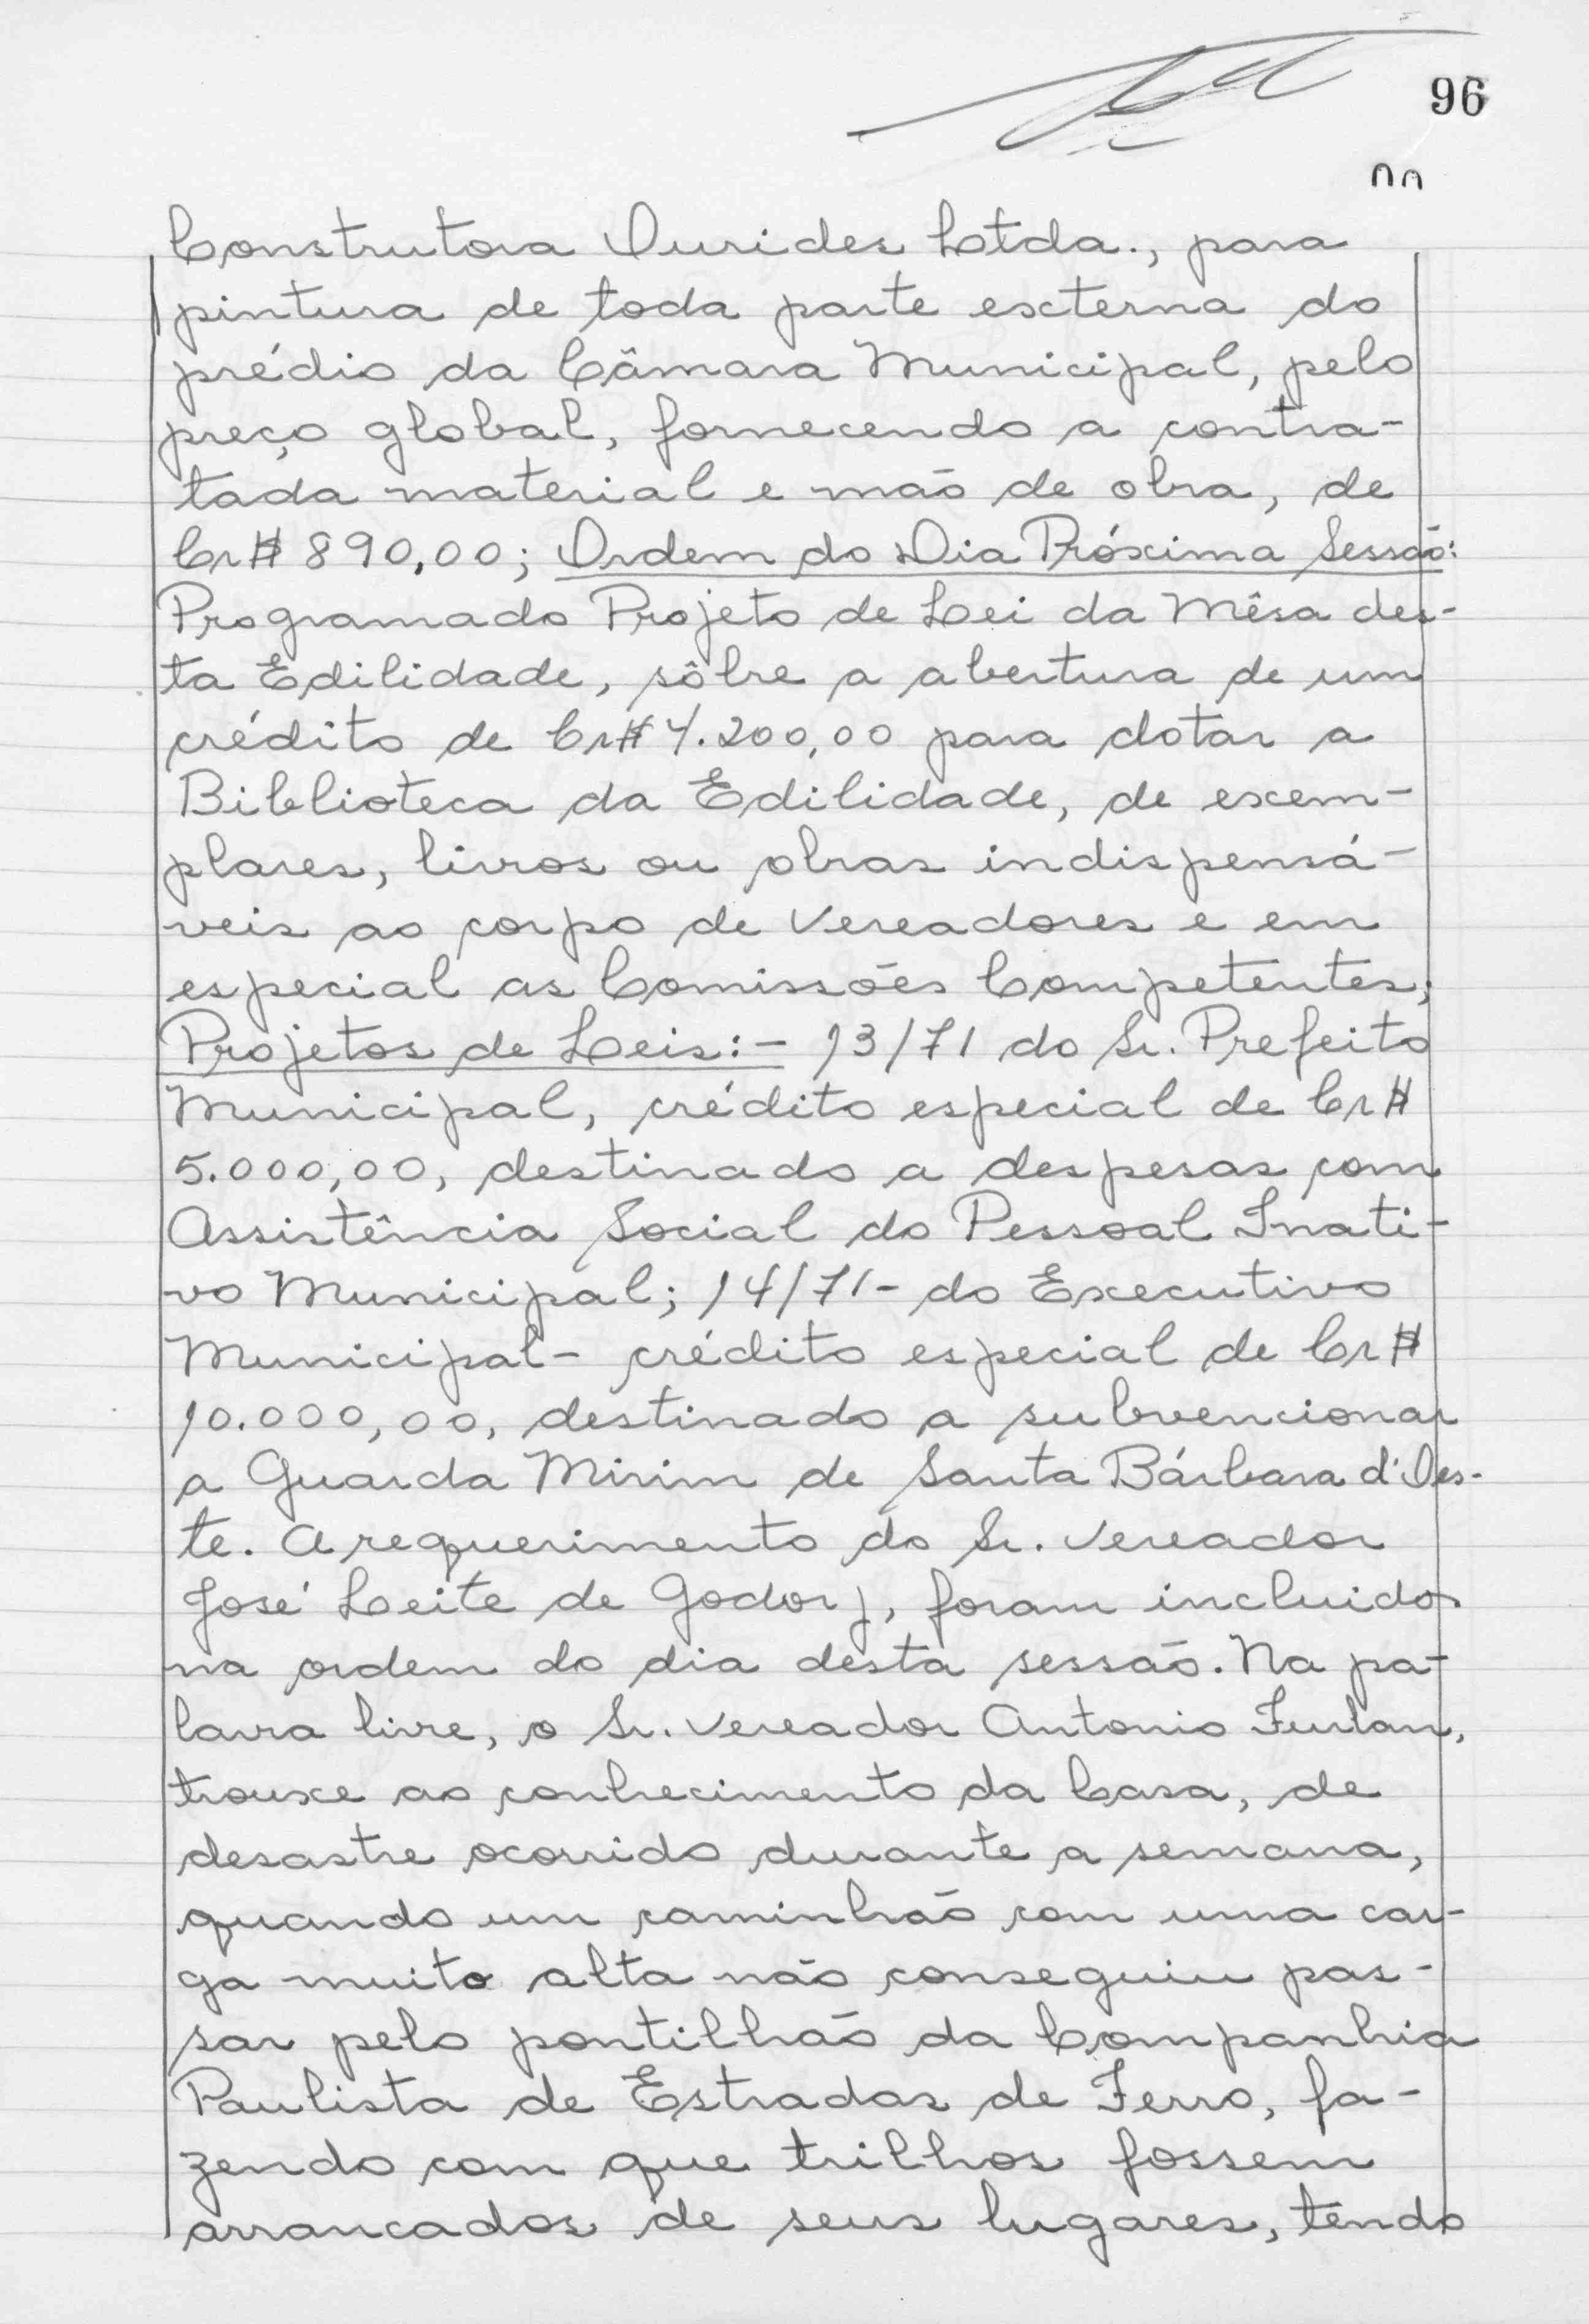 96
Construtora Ourides Ltda., para
pintura de toda parte externa do
prédio da Câmara Municipal, pelo
preço global, fornecendo a contra-
tada material e mão de obra, de
Cr$ 890,00; Ordem do Dia Próxima Sessão:
Programado Projeto de Lei da Mêsa des-
ta Edilidade, sôbre a abertura de um
crédito de Cr$ 4.200,00 para dotar a
Biblioteca da Edilidade, de exem-
plares, livros ou obras indispensá-
veis ao corpo de Vereadores e em
especial as Comissões Competentes;
Projetos de Leis:- 13/71 do Sr. Prefeito
Municipal, crédito especial de Cr$
5.000,00, destinado a despesas com
Assistência Social do Pessoal Inati-
vo Municipal; 14/71- do Executivo
Municipal- crédito especial de Cr$
10.000,00, destinado a subvencionar
a Guarda Mirim de Santa Bárbara d'Oes-
te. A requerimento do Sr. Vereador
José Leite de Godoy, foram incluidos
na ordem do dia desta sessão. Na pa-
lavra livre, o Sr. Vereador Antonio Furlan,
trouxe ao conhecimento da Casa, de
desastre ocorrido durante a semana,
quando um caminhão com uma car-
ga muito alta não conseguiu pas-
sar pelo pontilhão da Companhia
Paulista de Estradas de Ferro, fa-
zendo com que trilhos fossem
arrancados de seus lugares, tendo